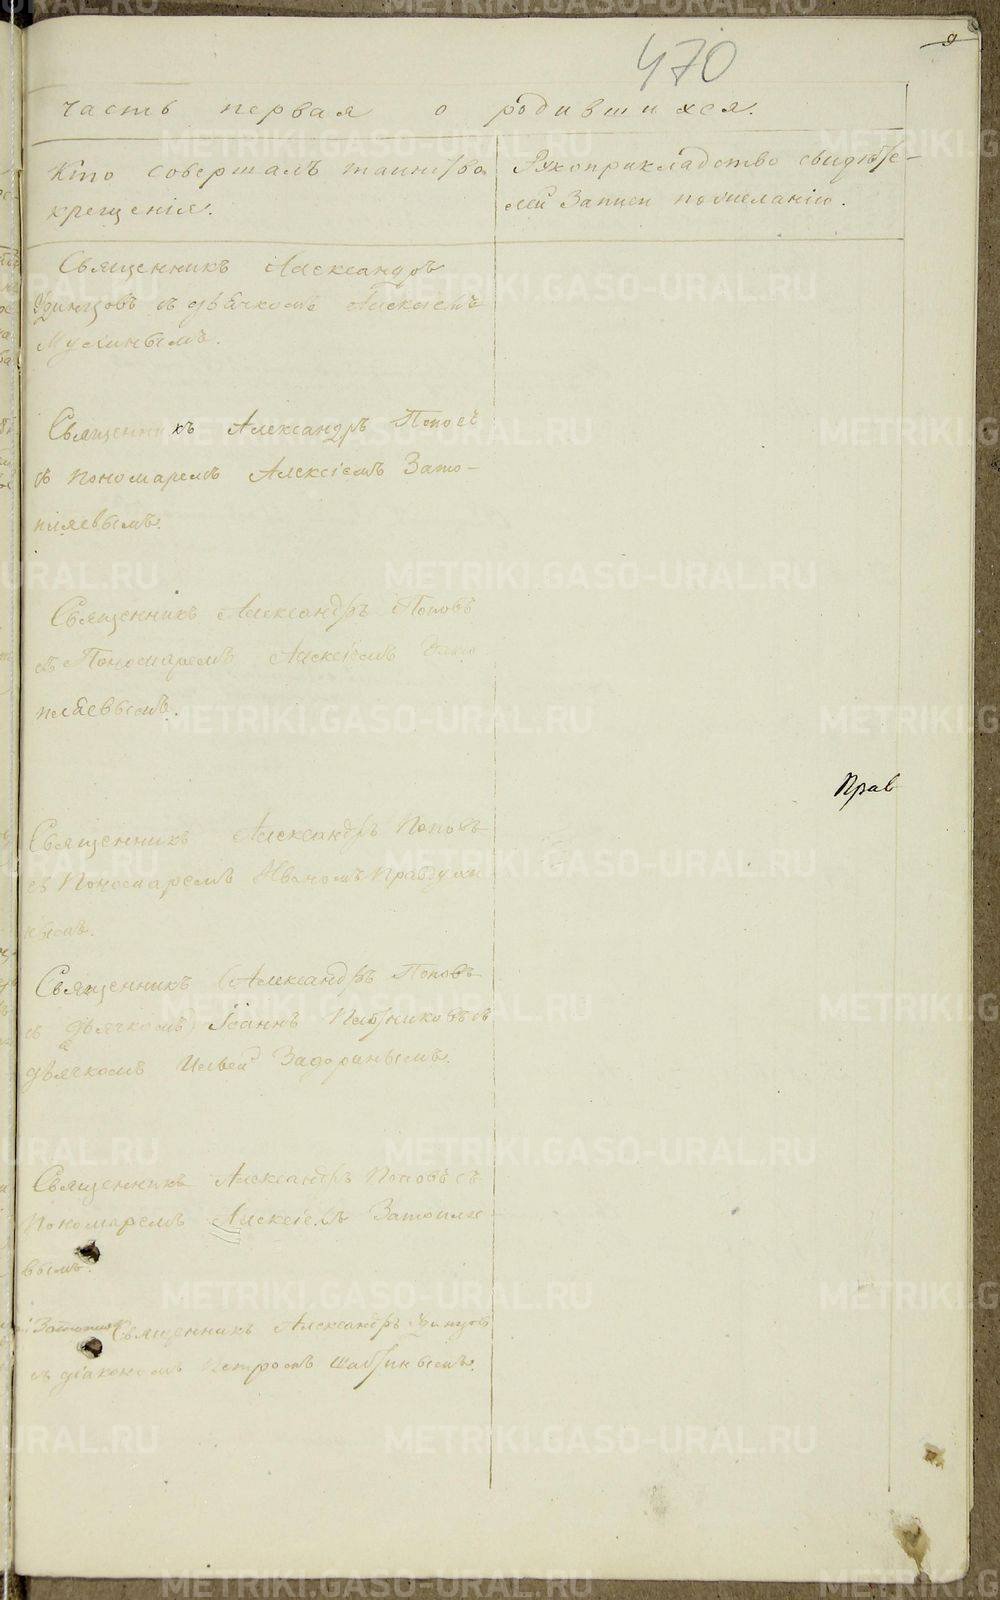 470
9
часть первая о родившихся.
Кто совершалъ таинство крещенія.
Рукоприкладство свидѣте-
лей записи по желанію.
Священникъ Александръ
Удинцовъ съ дьячкомъ Алексѣемъ
Мухинымъ.
Священникъ Александръ Поповъ
съ пономаремъ Алексіемъ Зато-
пляевымъ.
Священникъ Александръ Поповъ
съ Пономаремъ Алексіемъ Зато
пляевымъ.
Прав
Священникъ Александръ Поповъ
съ Пономаремъ Иваномъ Правдухи
нымъ.
Священникъ Александръ Поповъ
съ дьячкомъ Іоаннъ съ
дьячкомъ Ильей Задоринымъ.
Священникъ Александръ Поповъ съ
Пономаремъ Алексіемъ Затопляе
вымъ.
Священникъ Александръ Удинцовъ
съ діакономъ Петромъ
METRIKI.GASO-URAL.RU